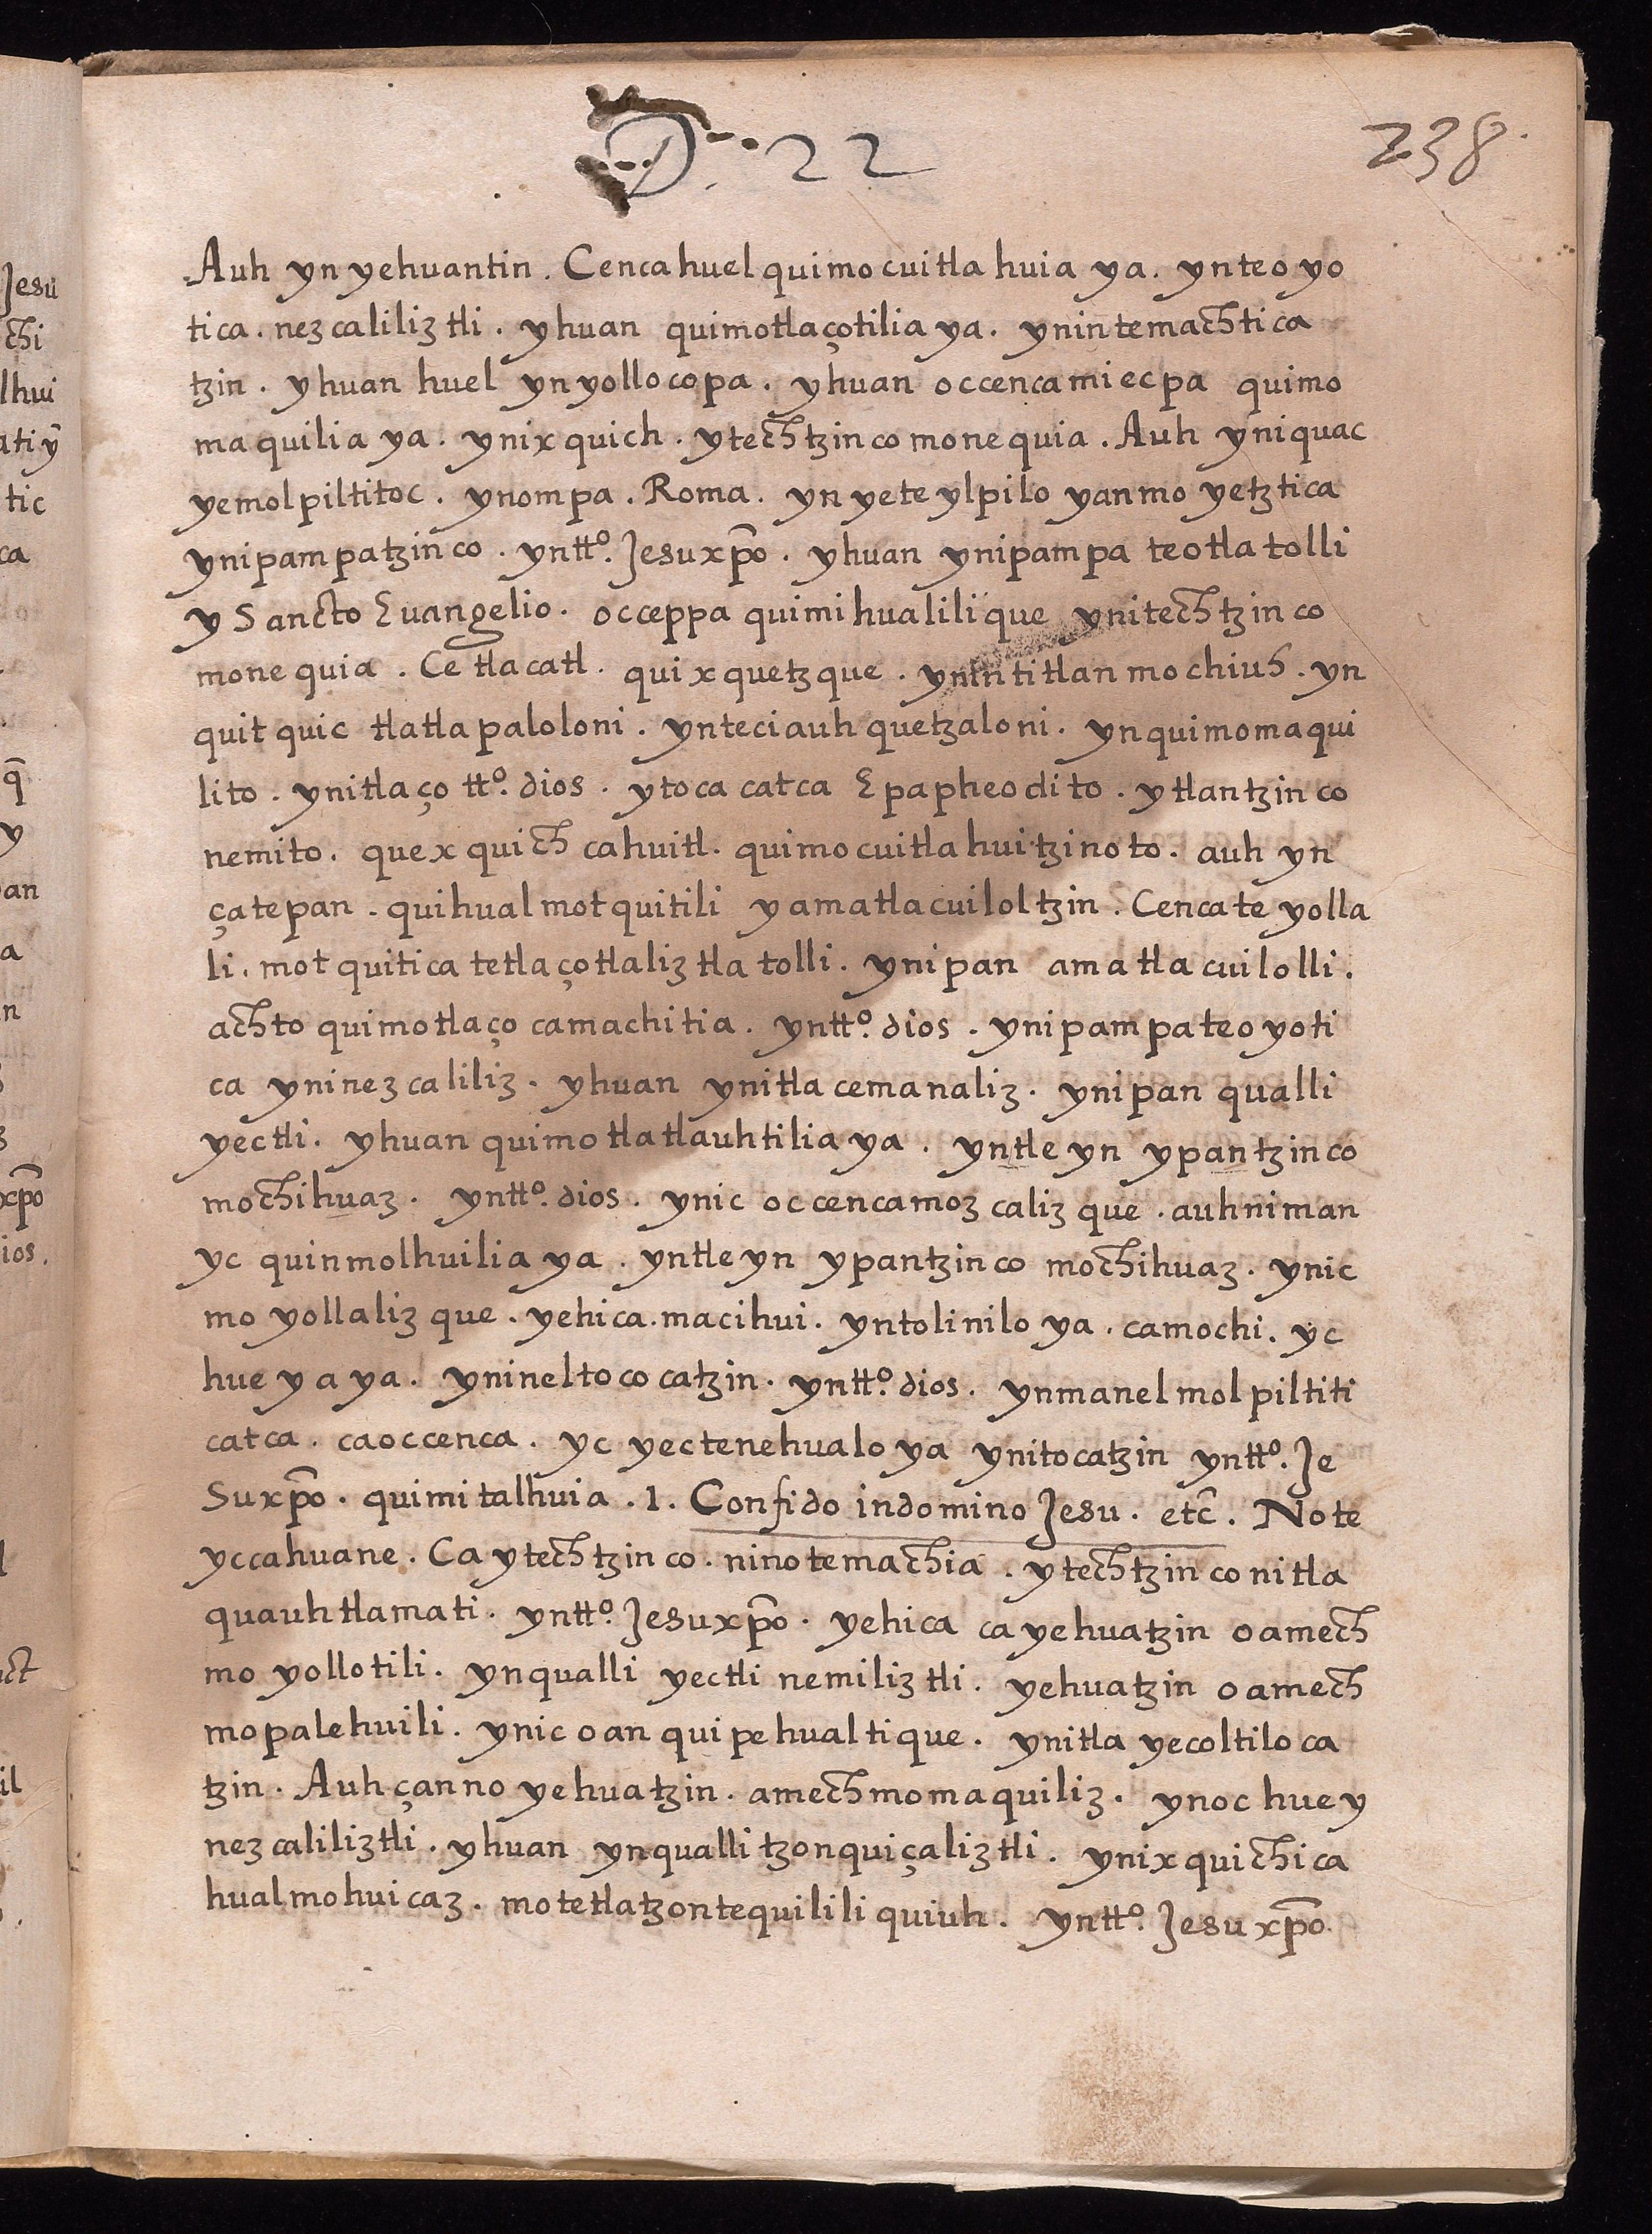 D. 22
238.
Auh yn yehuantin. Cencahuel quimo cuitla huia ya. ynteo yo
tica. nezcaliliztli. yhuan quimotlaçotilia ya. ynintemachtica
tzin. yhuan huel ynyollocopa. yhuan occencamiecpa quimo
maquilia ya. ynixquich. ytechtzinco monequia. Auh yniquac
yemolpiltitoc. ynompa. Roma. yn yete ylpilo yanmo yetztica
ynipampatzinco. yntto. Jesu xpõ. yhuan ynipampa teotlatolli
y Sancto Euangelio. occeppa quimihualilique ynitechtzinco
monequia. Ce tlacatl. quixquetzque. ynintitlan mochiuh. yn
quitquic tlatlapaloloni. ynteciauhquetzaloni. ynquimomaqui
lito. ynitlaço tto. dios. ytoca catca Epapheodito. ytlantzinco
nemito. quexquich cahuitl. quimocuitlahuitzinoto. auh yn
çatepan. quihualmotquitili yamatlacuiloltzin. Cencate yolla
li. motquitica tetlaçotlaliztlatolli. ynipan amatlacuilolli.
achto quimotlaço camachitia. yntto. dios. ynipampateoyoti
ca yninezcaliliz. yhuan ynitlacemanaliz. ynipan qualli
yectli. yhuan quimotlatlauhtilia ya. yntleyn ypantzinco
mochihuaz. yntto. dios. ynic occencamozcalizque. auhniman
yc quinmolhuilia ya. yntleyn ypantzinco mochihuaz. ynic
mo yollalizque. yehica. macihui. yntolinilo ya. camochi. yc
hueyaya. ynineltococatzin. yntto. dios. ynmanelmolpiltiti
catca. caoccenca. yc yectenehualo ya ynitocatzin yntto. Je
Su xpõ. quimitalhuia. 1. Confido indomino Jesu. etc̃. Note
yccahuane. Ca ytechtzinco. ninotemachia. ytechtzinco nitla
quauhtlamati. yntto. Jesu xpõ. yehica ca yehuatzin oamech
mo yollotili. ynqualli yectli nemiliztli. yehuatzin oamech
mopalehuili. ynic oanquipehualtique. ynitla yecoltiloca
tzin. Auh çanno yehuatzin. amechmomaquiliz. ynoc huey
nezcaliliztli. yhuan ynqualli tzonquiçaliztli. ynixquichica
hualmohuicaz. motetlatzontequililiquiuh. yntto. Jesu xpõ.